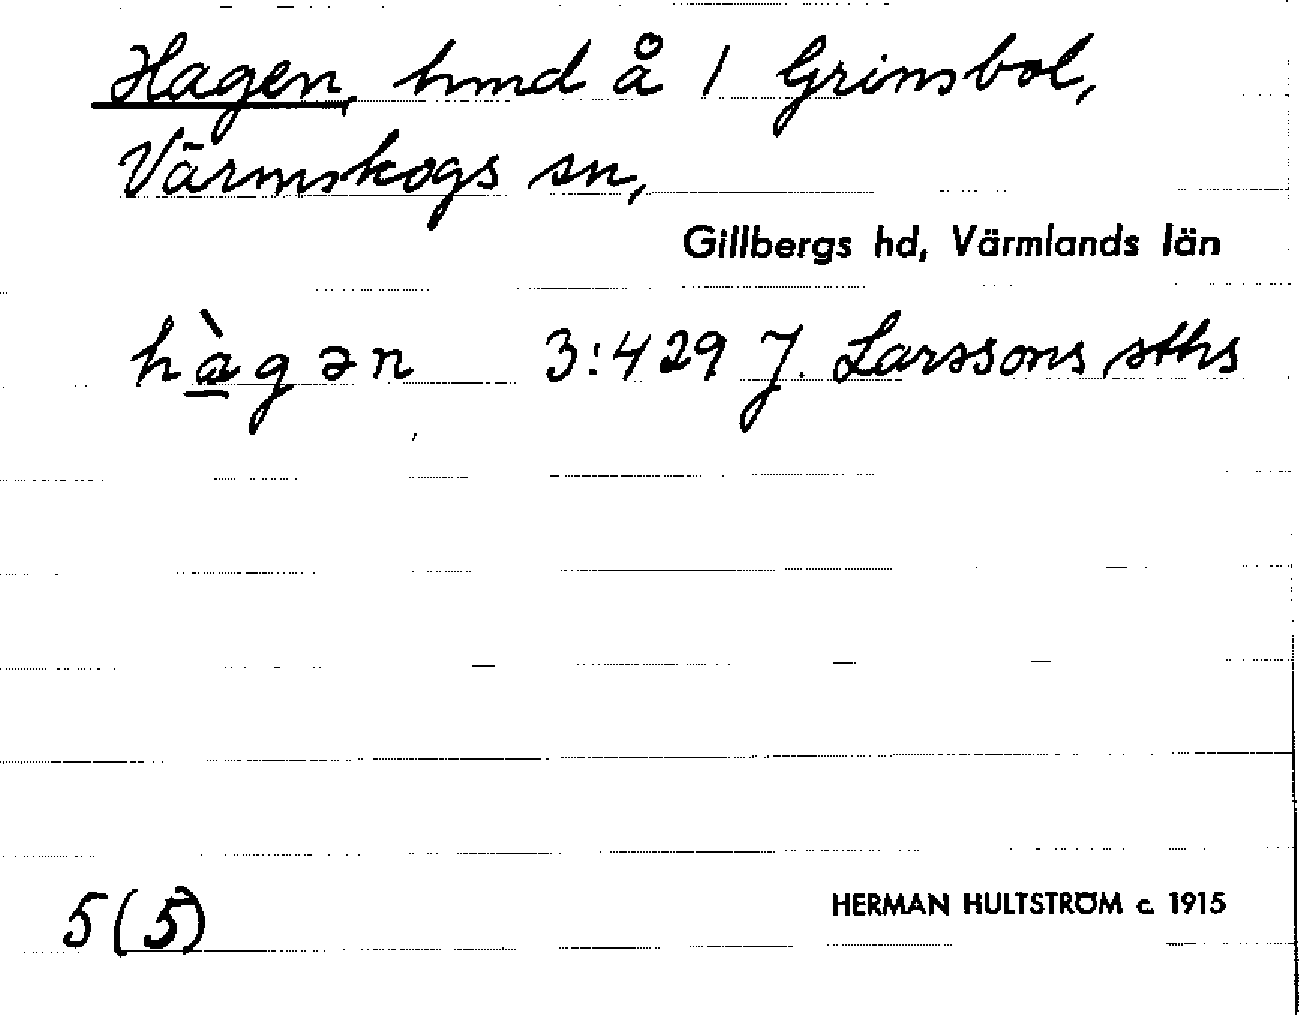 Hagen, hmd å 1 Grinsbol,
Värmskogs sn,
Gillbergs hd, Värmlands län
hàgən 3:429 J. Larssons sths
5(5)
HERMAN HULTSTRÖM c. 1915